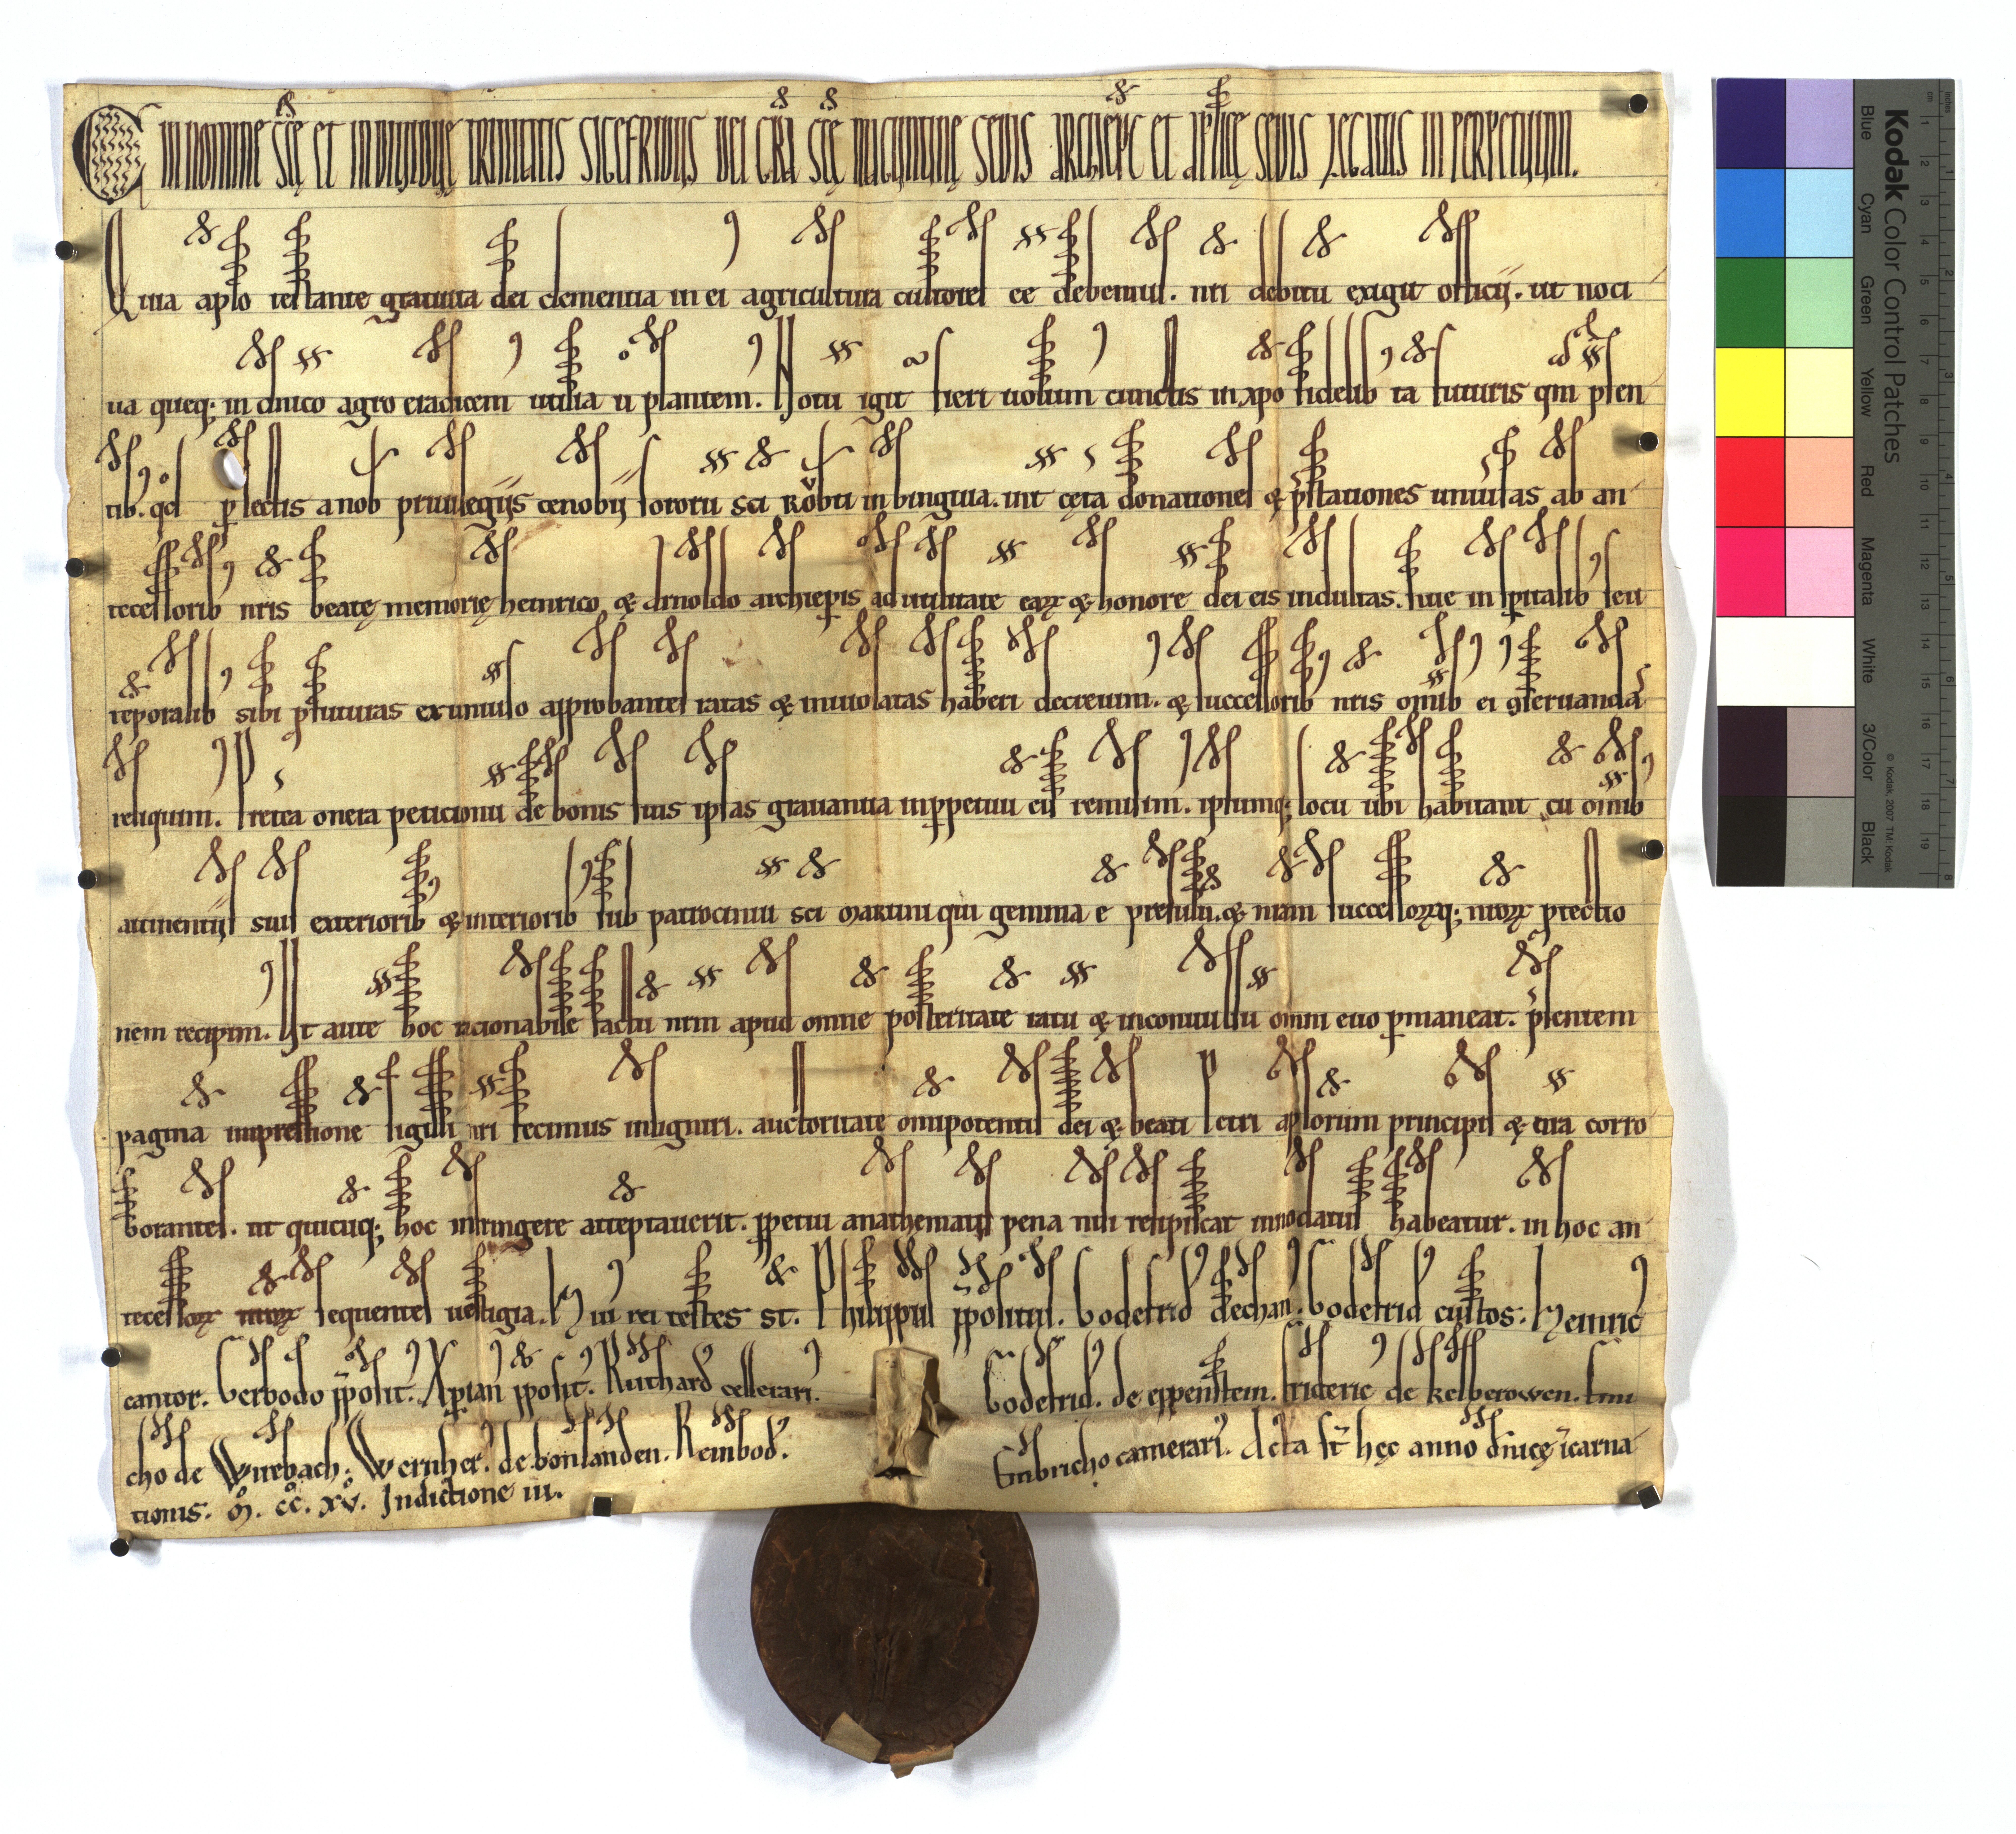 IN NOMINE SCĘ ET INDIVIDUĘ TRINITATIS SIGEFRIDUS DEI GRA SCĘ MAGUNTINĘ SEDIS ARCHIEPC ET APLICĘ SEDIS LEGATUS IN PERPETUUM.
Quia aplo testante gratuita dei clementia in ei agricultura cultores ee debemus. nri debitu exigit officij. ut noci
ua queq; in dnico agro eradicem utilia u plantem. Notu igit fieri uolum cunctis in xpo fidelib ta futuris qm psen
tib. qd plectis a nob priuilegijs cenobij sororu sci Rŏbti in binguia. uit cęta donationes & pstationes uniusas ab an
tecessorib nris beatę memorię heinrico & arnoldo archiepis ad utilitate earꝝ & honore dei eis indultas. siue in spitalib seu
teporalib sibi pfuturas ex uniuso approbantes ratas & inuiolatas haberi decreuim. & successorib nris omib ei 9seruanda
reliquim. Pretea onera peticionu de bonis suis ipsas grauantia inppetuu eis remisim. ipsumq; locu ubi habitant cu omib
attinentijs suis exteriorib & interiorib sub patrociniu sci Martini qui gemma e presulu. & nram successorꝝq; nrorꝝ ptectio
nem recipim. Ut aute hoc racionabile factu nrm apud omne posteritate ratu & inconuulsu omni euo pmaneat. psentem
pagina impressione sigilli nri fecimus insigniri. auctoritate omipotentis dei & beati Petri aplorum principis & nra corro
borantes. ut quicuq; hoc infringere atteptauerit. ppetui anathematis pena nisi resipiscat innodatus habeatur. in hoc an
tecessorꝝ nrorꝝ sequentes uestigia. Hui rei testes st. Philippus ppositus. Godefrid dechan. Godefrid custos. Heinric
cantor. Gerbodo pposit. Xpian pposit. Ruthard cellerari. Godefrid. de eppenstein. Frideric de kelberowen. Em
cho de Wirebach. Wernher. de bonlanden. Reinbod. Embricho camerari. Acta st hęc anno dnicę icarna
tionis. M. cc. xv. Indictione iii.
Kodak Color Control Patches
Blue Cyan Green Yellow Red Magenta White 3/Color Black
© Kodak, 2007 TM: Kodak
cm 1 2 3 4 5 6 7 8 9 10 11 12 13 14 15 16 17 18 19
Inches 1 2 3 4 5 6 7 8